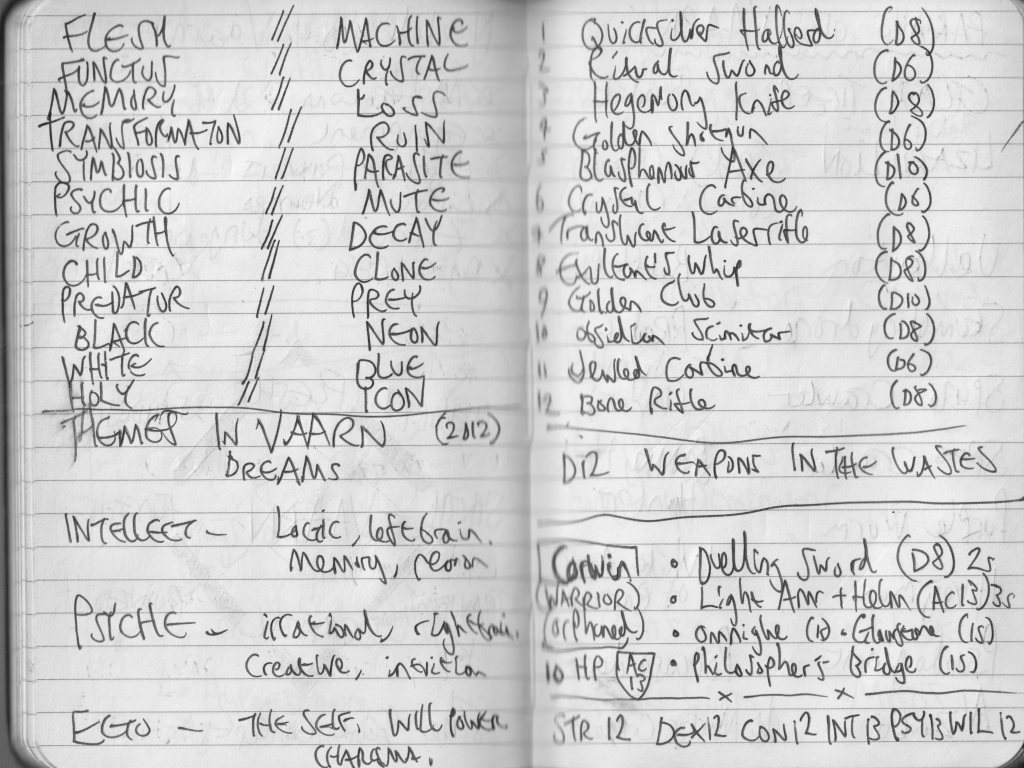 FLESH // MACHINE
FUNGUS // CRYSTAL
MEMORY // LOSS
TRANSFORMATION // RUIN
SYMBIOSIS // PARASITE
PSYCHIC // MUTE
GROWTH // DECAY
CHILD // CLONE
PREDATOR // PREY
BLACK // NEON
WHITE // BLUE
HOLY // ICON
THEMES IN VAARN (2D12)
DREAMS
INTELLECT – Logic, left brain.
Memory, reason
PSYCHE – irrational, right brain.
Creative, intuition
EGO – THE SELF. WILLPOWER
CHARISMA.
1 Quicksilver Halberd (D8)
2 Ritual Sword (D6)
3 Hegemony Knife (D8)
4 Golden Shotgun (D6)
5 Blasphemous Axe (D10)
6 Crystal Carbine (D6)
7 Translucent Laserrifle (D8)
8 Exultant's Whip (D8)
9 Golden Club (D10)
10 Obsidian Scimitar (D8)
11 Jewelled Carbine (D6)
12 Bone Rifle (D8)
D12 WEAPONS IN THE WASTES
Corwin • Duelling Sword (D8) 2s
(WARRIOR) • Light Arm + Helm (AC13) 3s
(orphaned) • (1s) • Glowstone (1s)
10 HP AC 13 • Philosopher's Bridge (1s)
STR 12 DEX 12 CON 12 INT 13 PSY 13 WIL 12